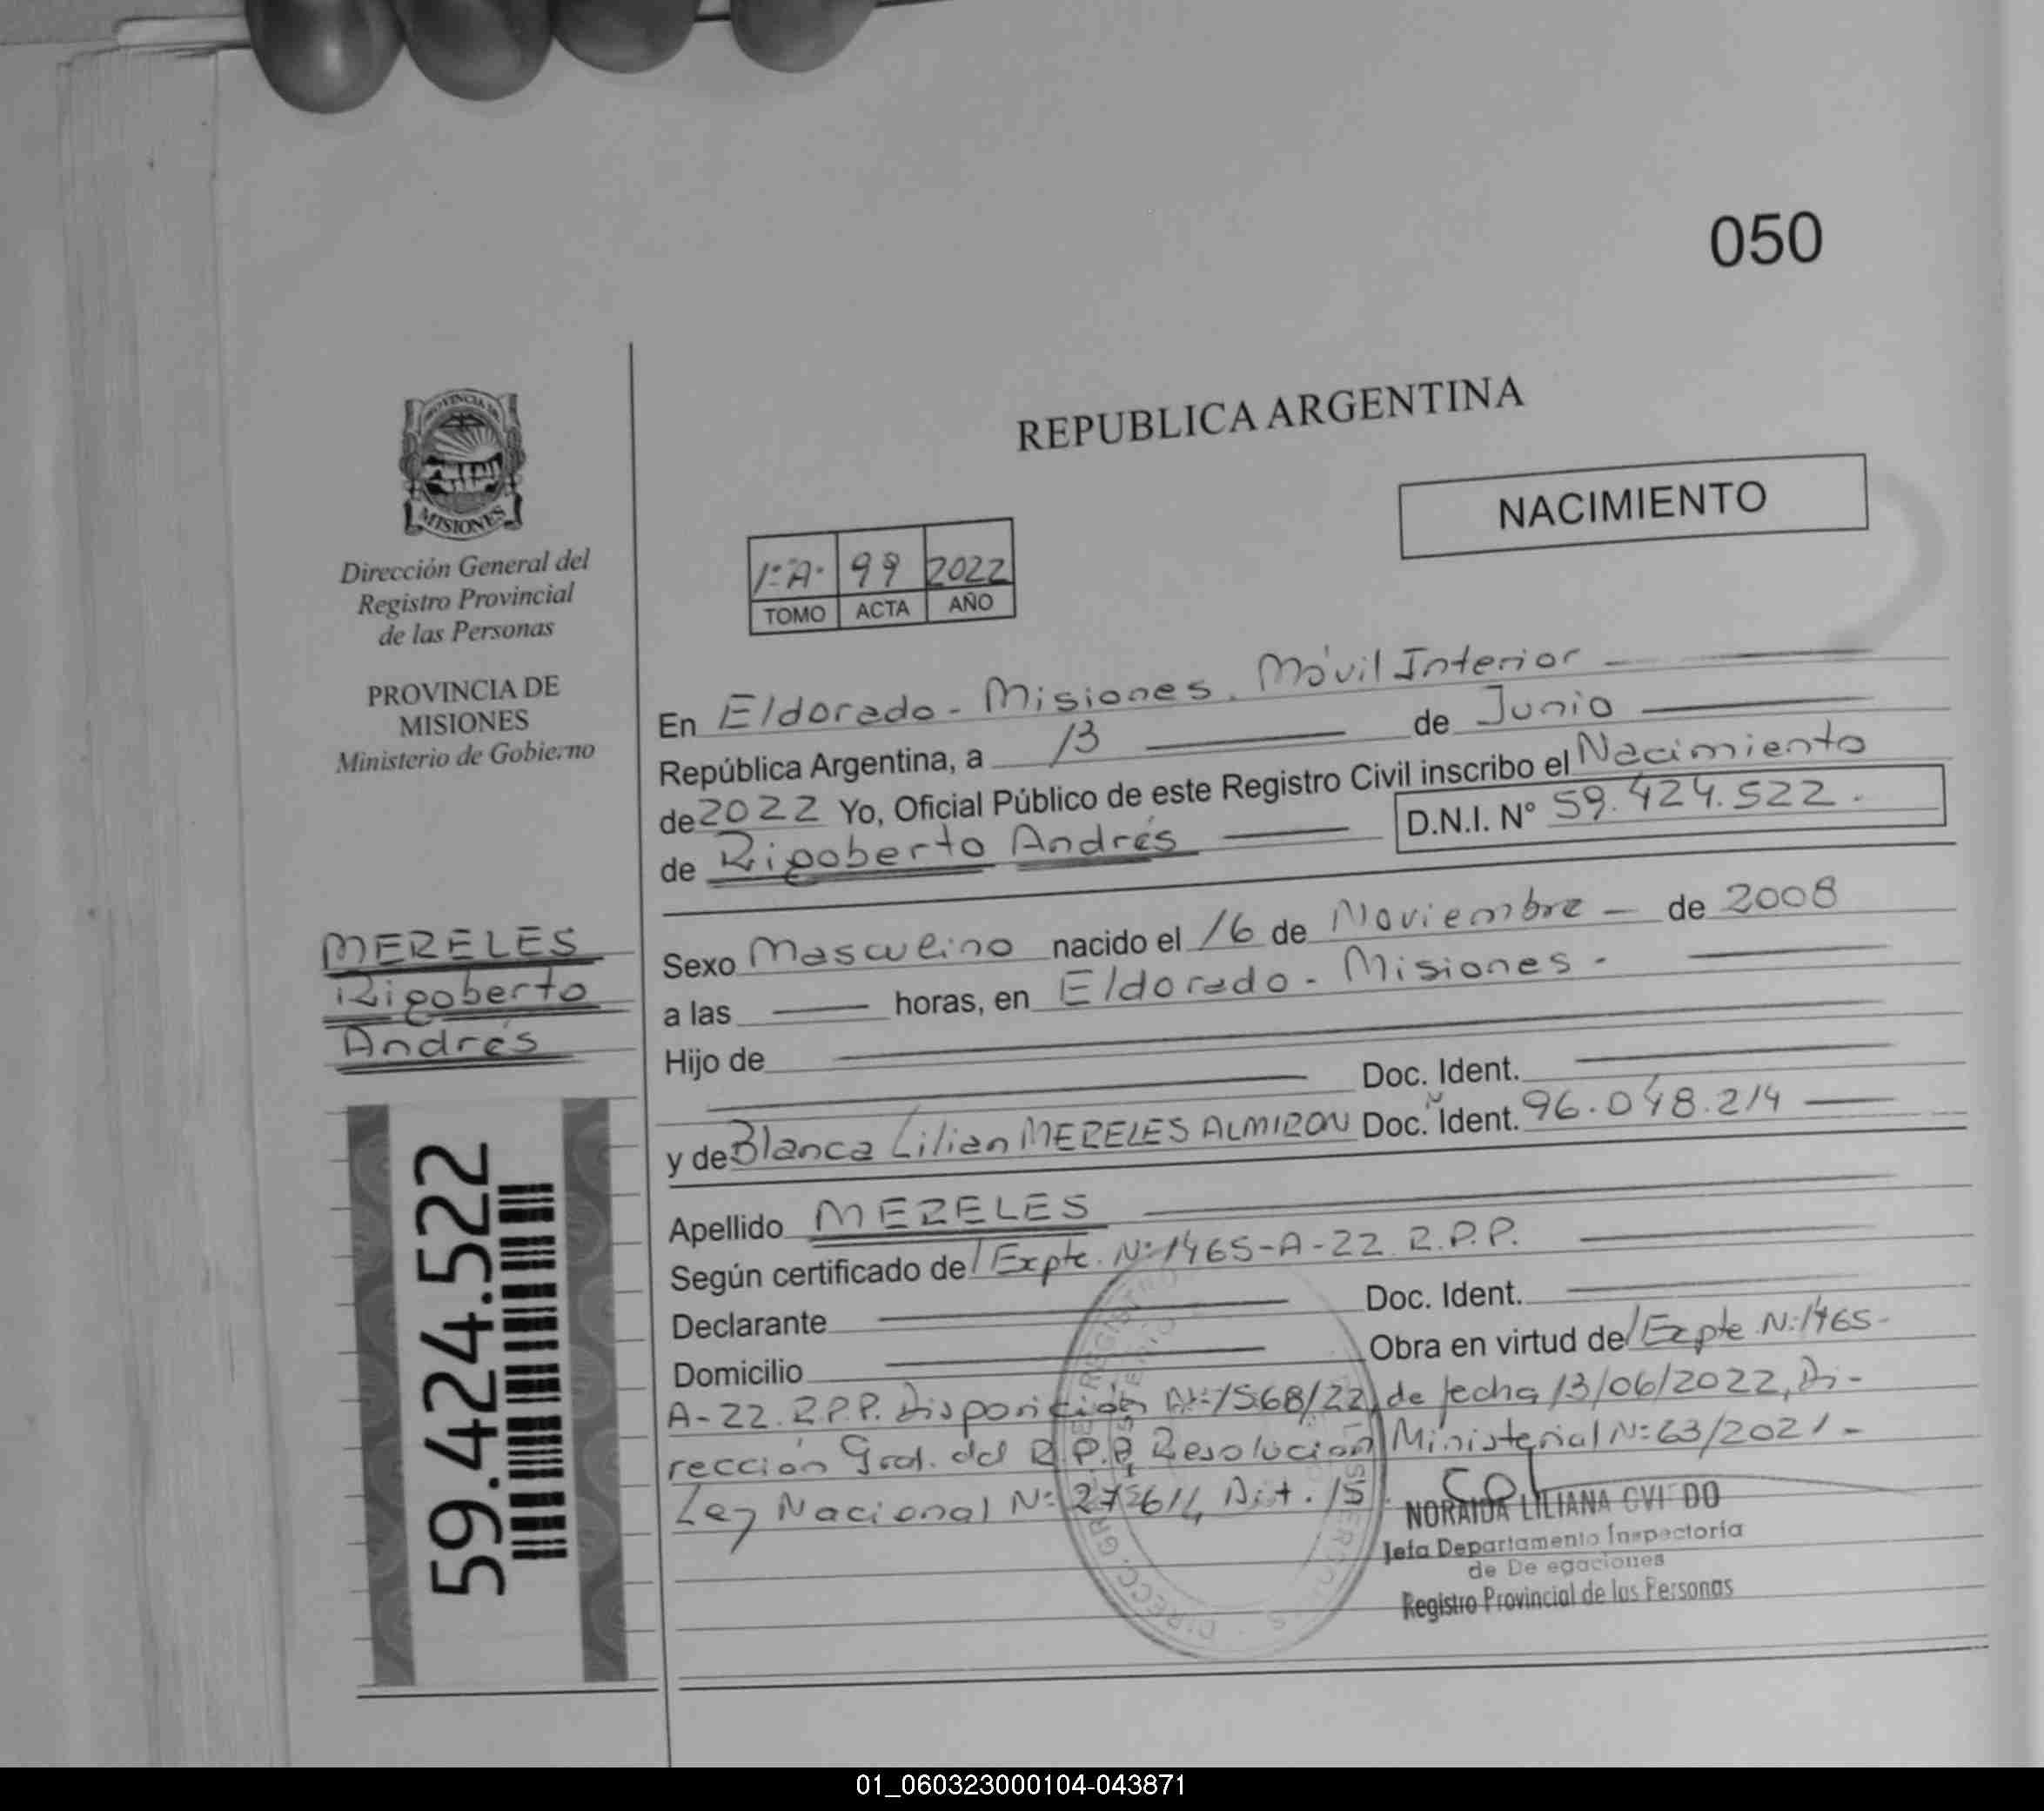 050
REPUBLICA ARGENTINA
NACIMIENTO
PROVINCIA DE
MISIONES
Dirección General del
Registro Provincial
de las Personas
PROVINCIA DE
MISIONES
Ministerio de Gobierno
1º"A" 99 2022
TOMO ACTA AÑO
En Eldorado - Misiones. Móvil Interior
República Argentina, a 13 de Junio
de 2022 Yo, Oficial Público de este Registro Civil inscribo el Nacimiento
de Rigoberto Andrés D.N.I. Nº 59.424.522.
MERELES
Rigoberto
Andrés
Sexo Masculino nacido el 16 de Noviembre de 2008
a las horas, en Eldorado - Misiones.
Hijo de
Doc. Ident.
y de Blanca Lilian MERELES ALMIRON Doc. Ident. 96.048.214
Apellido MERELES
Según certificado de/ Expte. Nº 1465-A-22 R.P.P.
Declarante Doc. Ident.
Domicilio Obra en virtud de/ Expte Nº 1465-
A-22. R.P.P. Disposición Nº 1568/22, de fecha 13/06/2022, Di-
rección Gral. del R.P.P, Resolución Ministerial Nº 63/2021-
Ley Nacional Nº 611, Art. 15.
59.424.522
NORAIDA LILIANA OVI DO
Jefa Departamento Inspectoría
de De egaciones
Registro Provincial de las Personas
01_060323000104-043871